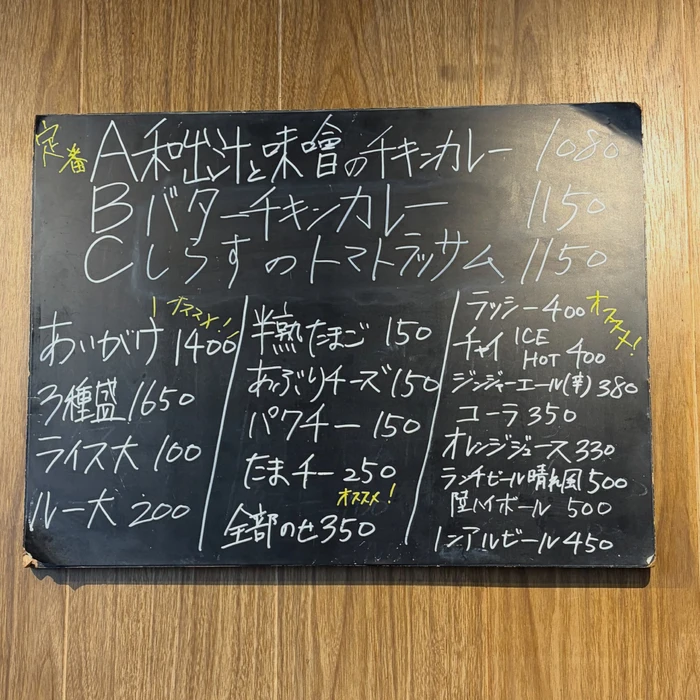 定番
A 和出汁と味噌のチキンカレー 1080
B バターチキンカレー 1150
C しらすのトマトラッサム 1150
オススメ!
あいがけ 1400
3種盛 1650
ライス大 100
ルー大 200
半熟たまご 150
あぶりチーズ 150
パクチー 150
たまチー 250
オススメ!
全部のせ 350
ラッシー 400
オススメ!
チャイ ICE HOT 400
ジンジャーエール(辛) 380
コーラ 350
オレンジジュース 330
ランチビール晴れ風 500
陸ハイボール 500
ノンアルビール 450